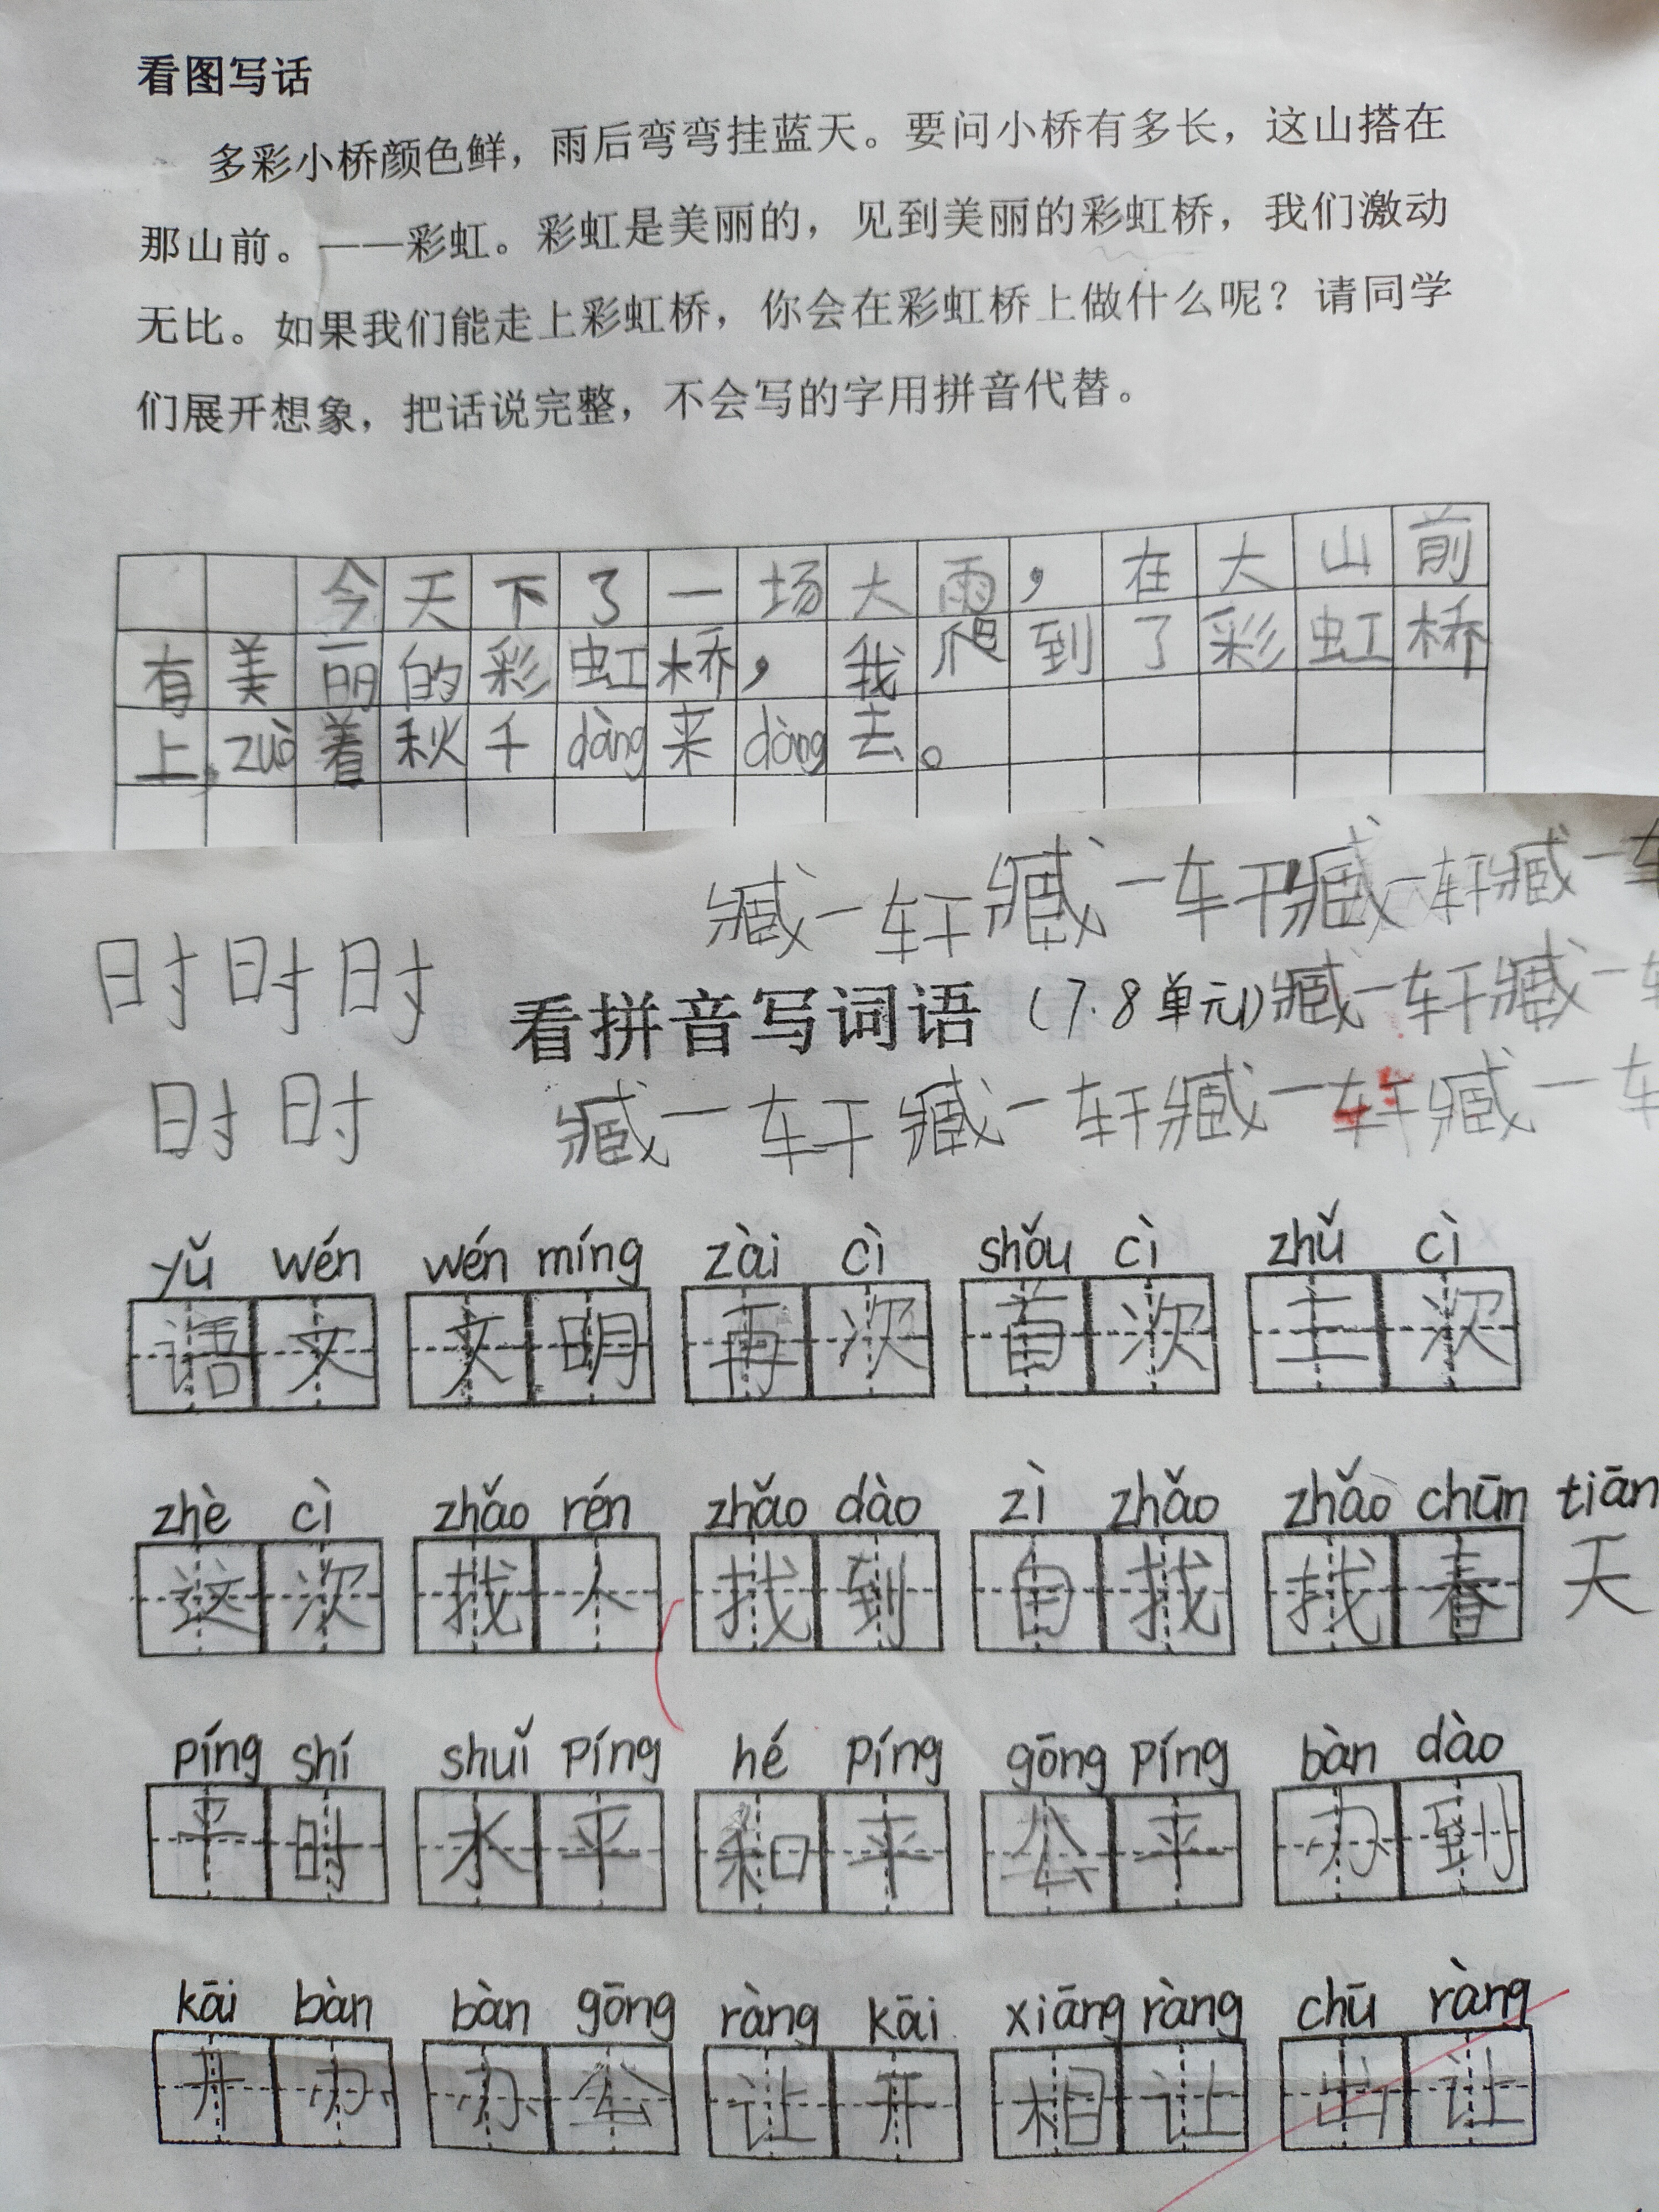 看图写话
多彩小桥颜色鲜，雨后弯弯挂蓝天。要问小桥有多长，这山搭在
那山前。——彩虹。彩虹是美丽的，见到美丽的彩虹桥，我们激动
无比。如果我们能走上彩虹桥，你会在彩虹桥上做什么呢？请同学
们展开想象，把话说完整，不会写的字用拼音代替。
今天下了一场大雨，在大山前
有美丽的彩虹桥，我爬到了彩虹桥
上，zuò着秋千dàng来dàng去。
臧一轩臧一轩臧一轩臧一车
时时时
看拼音写词语（7.8单元）臧一轩臧一
时时
臧一轩臧一轩臧一轩臧一车
yǔ wén wén míng zài cì shǒu cì zhǔ cì
语文 文明 再次 首次 主次
zhè cì zhǎo rén zhǎo dào zì zhǎo zhǎo chūn tiān
这次 找人 找到 自找 找春天
píng shí shuǐ píng hé píng gōng píng bàn dào
平时 水平 和平 公平 办到
kāi bàn bàn gōng ràng kāi xiāng ràng chū ràng
开办 办公 让开 相让 出让